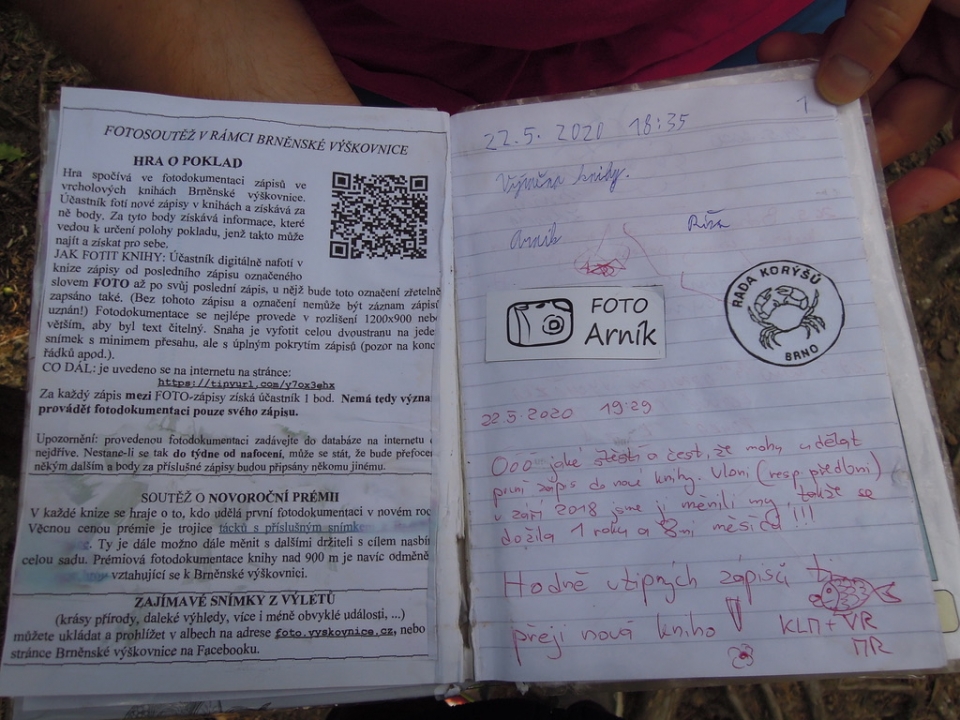 FOTOSOUTĚŽ V RÁMCI BRNĚNSKÉ VÝŠKOVNICE
HRA O POKLAD
Hra spočívá ve fotodokumentaci zápisů ve
vrcholových knihách Brněnské výškovnice.
Účastník fotí nové zápisy v knihách a získává za
ně body. Za tyto body získává informace, které
vedou k určení polohy pokladu, jenž takto může
najít a získat pro sebe.
JAK FOTIT KNIHY: Účastník digitálně nafotí v
knize zápisy od posledního zápisu označeného
slovem FOTO až po svůj poslední zápis, u nějž bude toto označení zřetelně
zapsáno také. (Bez tohoto zápisu a označení nemůže být záznam zápisů
uznán!) Fotodokumentace se nejlépe provede v rozlišení 1200x900 nebo
větším, aby byl text čitelný. Snaha je vyfotit celou dvoustranu na jede
snímek s minimem přesahu, ale s úplným pokrytím zápisů (pozor na konc
řádků apod.).
CO DÁL: je uvedeno se na internetu na stránce:
https://tinyurl.com/y7ox3ehx
Za každý zápis mezi FOTO-zápisy získá účastník 1 bod. Nemá tedy význa
provádět fotodokumentaci pouze svého zápisu.
Upozornění: provedenou fotodokumentaci zadávejte do databáze na internetu
nejdříve. Nestane-li se tak do týdne od nafocení, může se stát, že bude přefoce
někým dalším a body za příslušné zápisy budou připsány někomu jinému.
SOUTĚŽ O NOVOROČNÍ PRÉMII
V každé knize se hraje o to, kdo udělá první fotodokumentaci v novém roc
Věcnou cenou prémie je trojice tácků s příslušným snímke
. Ty je dále možno dále měnit s dalšími držiteli s cílem nasbí
celou sadu. Prémiová fotodokumentace knihy nad 900 m je navíc odměně
vztahující se k Brněnské výškovnici.
ZAJÍMAVÉ SNÍMKY Z VÝLETŮ
(krásy přírody, daleké výhledy, více i méně obvyklé události, ...)
můžete ukládat a prohlížet v albech na adrese foto.vyskovnice.cz, nebo
stránce Brněnské výškovnice na Facebooku.
1
22.5. 2020 18:35
Výměna knihy.
Arník Ríša
FOTO
Arník
RADA KORÝŠŮ
BRNO
22.5.2020 19:29
Óóó jaké štěstí a čest, že mohu udělat
první zápis do nové knihy. Vloni (resp. předloni)
v září 2018 jsme ji měnili my, takže se
dožila 1 roku a 8mi měsíců!!!
Hodně vtipných zápisů ti
přeji nová kniho!
KLM + VR
MR